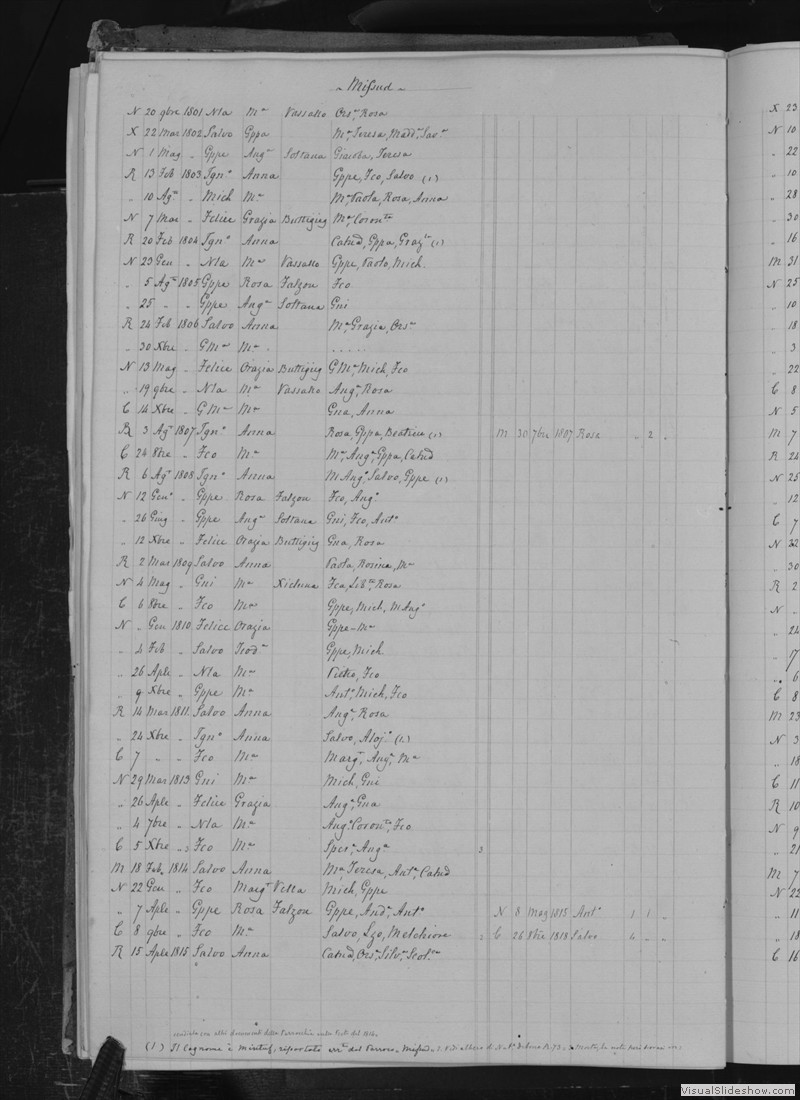 Mifsud
N 20 9bre 1801 Nla Ma Vassallo Orsa, Rosa
X 22 Mar 1802 Salvo Gppa Ma Teresa, Madda, Sava
N 1 Mag „ Gppe Anga Sottana Giacoba, Teresa
R 13 Feb 1803 Igno Anna Gppe, Fco, Salvo (1)
„ 10 Ago „ Mich Ma Ma Paola, Rosa, Anna
N 7 Mar „ Felice Grazia Buttigieg Ma, Coronta
R 20 Feb 1804 Igno Anna Catnd, Gppa, Graza (1)
N 23 Gen „ Nla Ma Vassallo Gppe, Paolo, Mich.
„ 5 Ago 1805 Gppe Rosa Falzon Fco
„ 25 „ „ Gppe Anga Sottana Gni
R 24 Feb 1806 Salvo Anna Ma Grazia, Orsa
„ 30 Xbre „ GMa Ma .....
N 13 Mag „ Felice Orazia Buttigieg GMa, Mich, Fco
„ 19 9bre „ Nla Ma Vassallo Anga, Rosa
C 14 Xbre „ GMa Ma Gna, Anna
R 3 Ago 1807 Igno Anna Rosa, Gppa, Beatrice (1) M 30 7bre 1807 Rosa „ 2 „
C 24 8bre „ Fco Ma Ma, Anga, Gppa, Catnd
R 6 Ago 1808 Igno Anna MAnga, Salvo, Gppe (1)
N 12 Geno „ Gppe Rosa Falzon Fco, Ango
„ 26 Giug „ Gppe Anga Sottana Gni, Fco, Anto
„ 12 Xbre „ Felice Orazia Buttigieg Gna, Rosa
R 2 Mar 1809 Salvo Anna Paola, Rosina, Ma
N 4 Mag „ Gni Ma Xicluna Fca, Liba, Rosa
C 6 8bre „ Fco Ma Gppe, Mich, MAngo
N „ Gen 1810 Felice Orazia Gppe-Ma
„ 4 Feb „ Salvo Teoda Gppe, Mich
„ 26 Aple „ Nla Ma Pietro, Fco
„ 9 Xbre „ Gppe Ma Anto, Mich, Fco
R 14 Mar 1811 Salvo Anna Anga, Rosa
„ 24 Xbre „ Igno Anna Salvo, Aloja (1)
C 7 „ „ Fco Ma Marga, Anga, Ma
N 29 Mar 1813 Gni Ma Mich, Gni
„ 26 Aple „ Felice Grazia Anga, Gna
„ 4 7bre „ Nla Ma Ango, Coronto, Fco
C 5 Xbre „ Fco Ma Spera, Anga
M 18 Feb. 1814 Salvo Anna Ma Teresa, Anta, Catnd
N 22 Gen „ Fco Marga Vella Mich, Gppe
„ 7 Aple „ Gppe Rosa Falzon Gppe, Anda, Anto N 8 Mag 1815 Anto 1 1 „
C 8 9bre „ Fco Ma Salvo, Lzo, Melchiore C 26 8bre 1818 Salvo 4 „ „
R 15 Aple 1815 Salvo Anna Catnd, Orsa, Silva, Scola
altri documenti della Parrocchia
(1) Il Cognome è Mintuf, riportato dal Parroco Mifsud
X 23
N 10
„ 22
„ 10
„ 28
„ 30
„ 16
M 31
N 25
„ 10
„ 18
„ 3
„ 22
C 8
N 5
M 7
R 24
N 25
„ 12
C 7
N 22
„ 30
R 2
N „
„ 24
„ 17
„ 6
C 8
M 23
N 3
„ 18
C 11
R 10
N 9
„ 21
M 7
N 22
„ 11
„ 18
C 16
VisualSlideshow.com